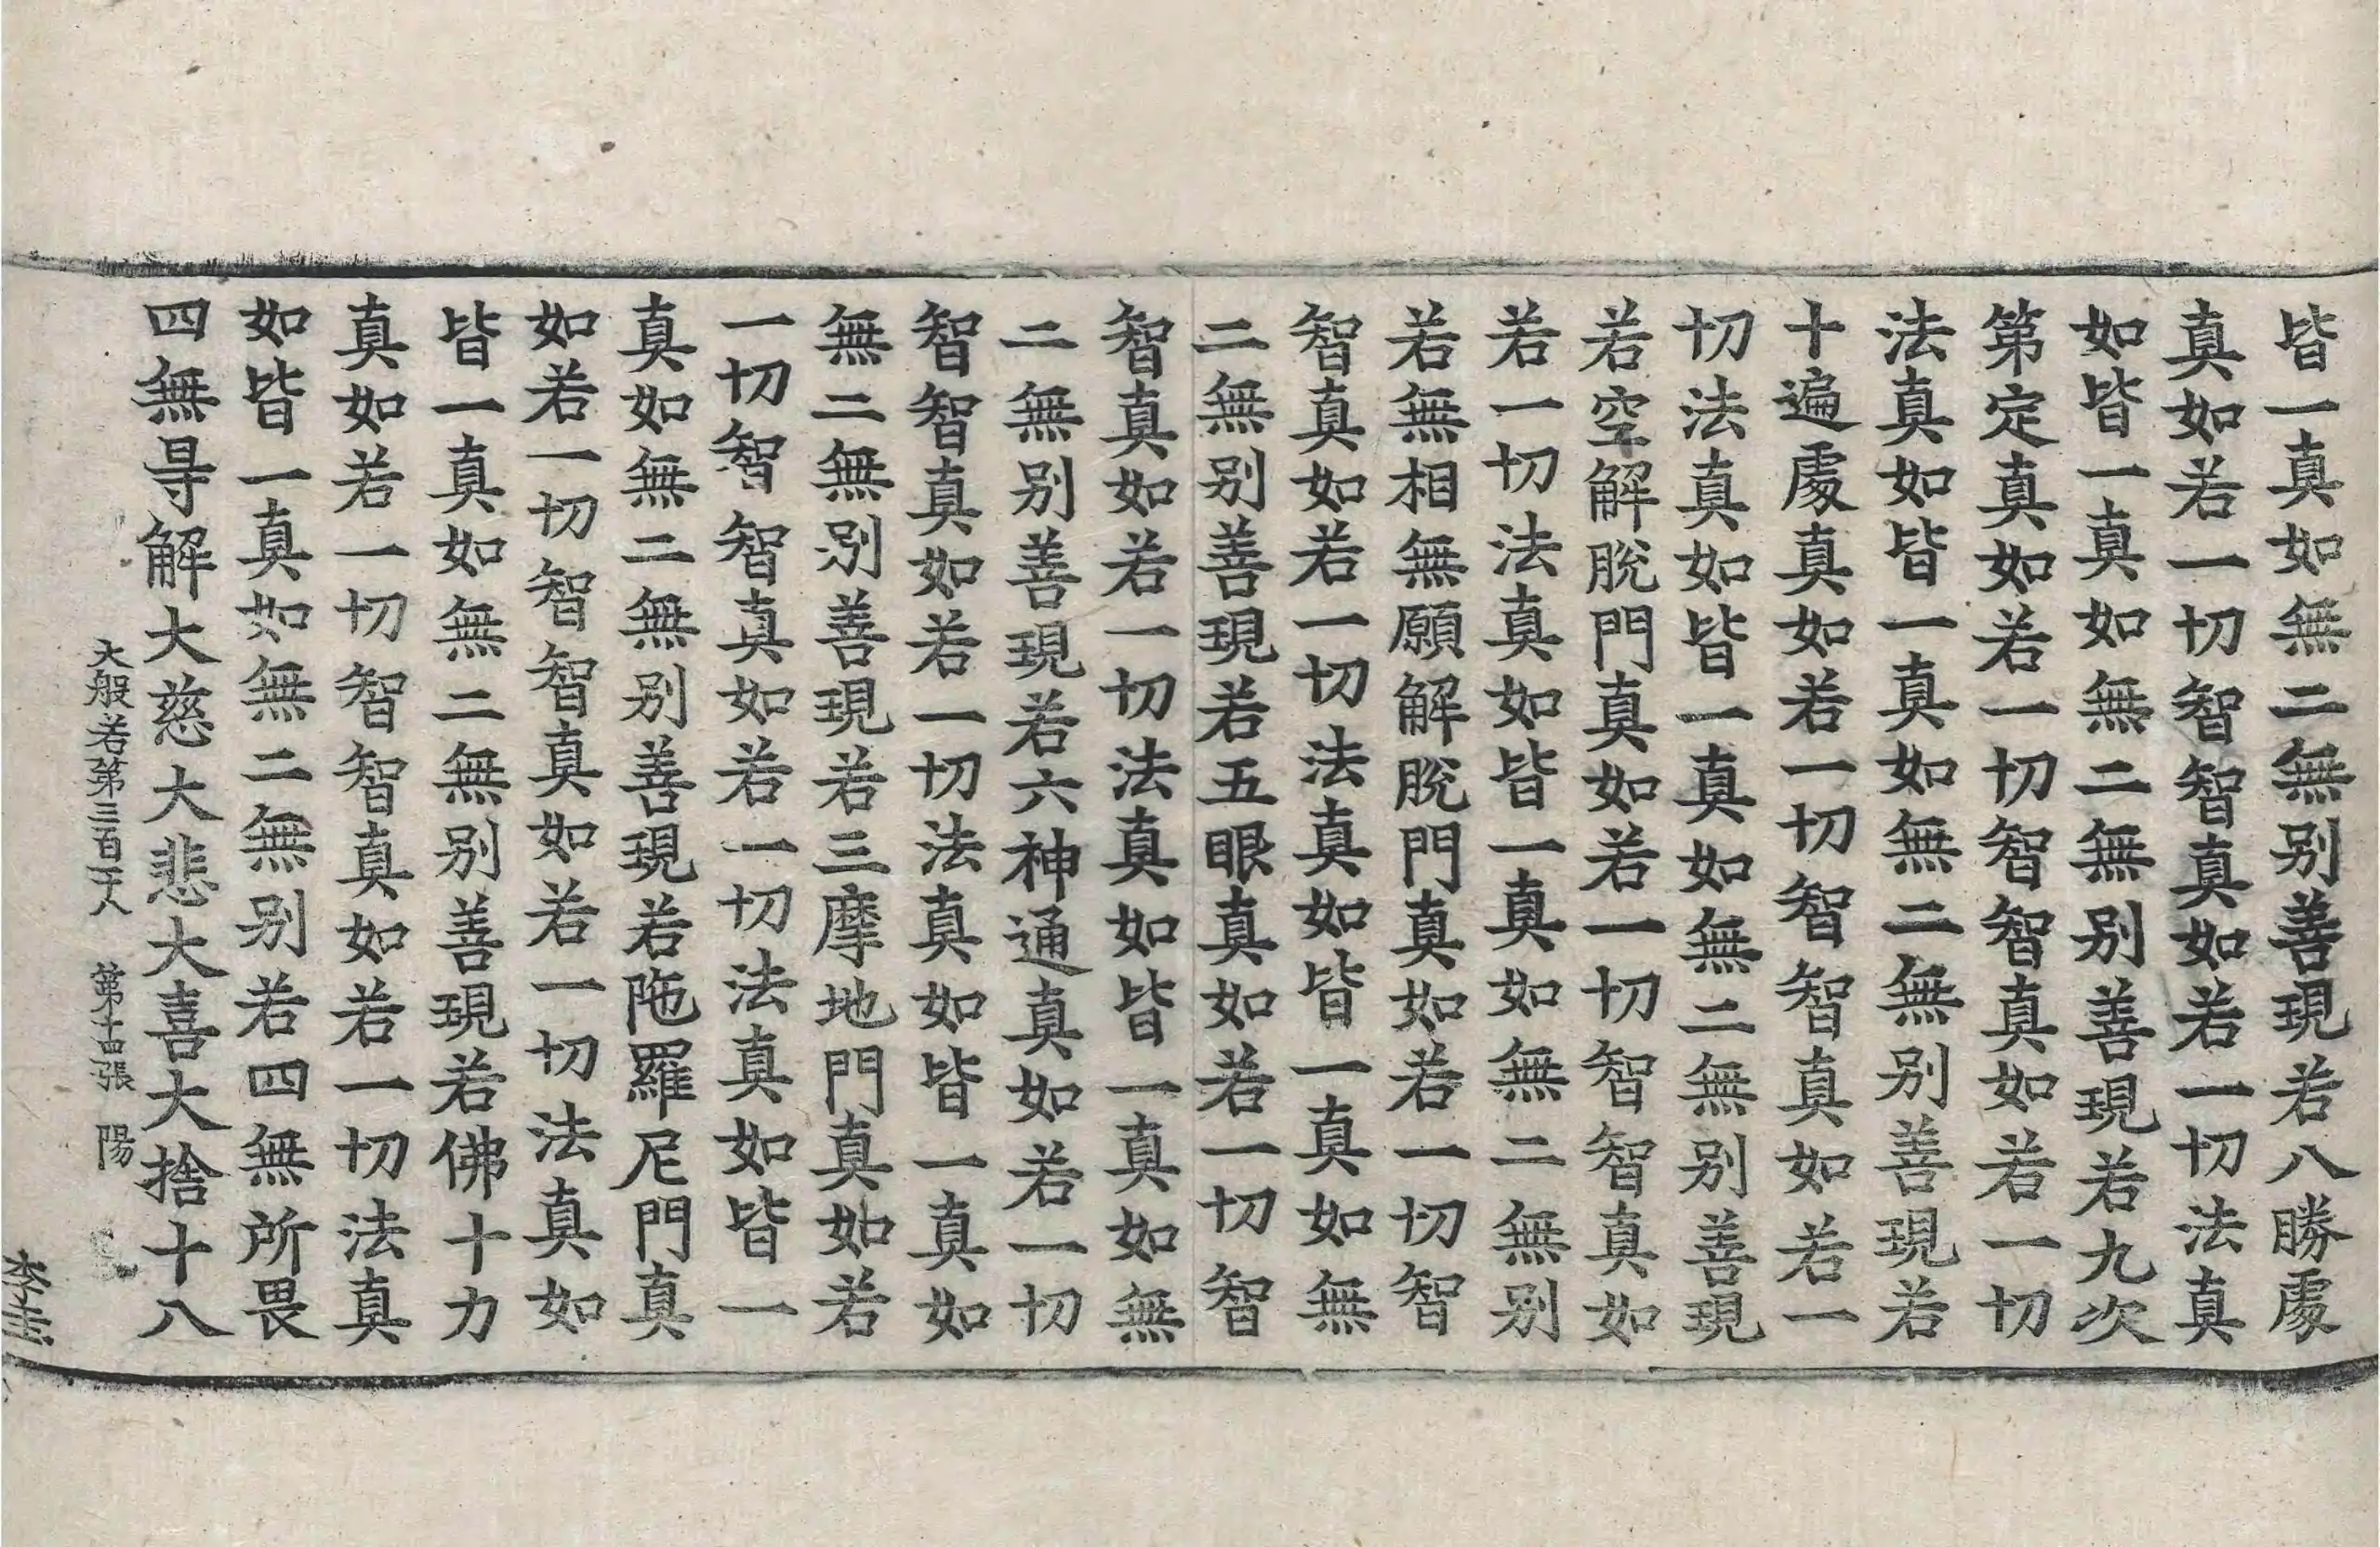 皆一真如無二無别善現若八勝處
真如若一切智智真如若一切法真
如皆一真如無二無别善現若九次
第定真如若一切智智真如若一切
法真如皆一真如無二無别善現若
十遍處真如若一切智智真如若一
切法真如皆一真如無二無别善現
若空解脫門真如若一切智智真如
若一切法真如皆一真如無二無别
若無相無願解脫門真如若一切智
智真如若一切法真如皆一真如無
二無别善現若五眼真如若一切智
智真如若一切法真如皆一真如無
二無别善現若六神通真如若一切
智智真如若一切法真如皆一真如
無二無别善現若三摩地門真如若
一切智智真如若一切法真如皆一
真如無二無别善現若陁羅尼門真
如若一切智智真如若一切法真如
皆一真如無二無别善現若佛十力
真如若一切智智真如若一切法真
如皆一真如無二無别若四無所畏
四無㝵解大慈大悲大喜大捨十八
大般若第三百二十八 第十四張 陽
李圭